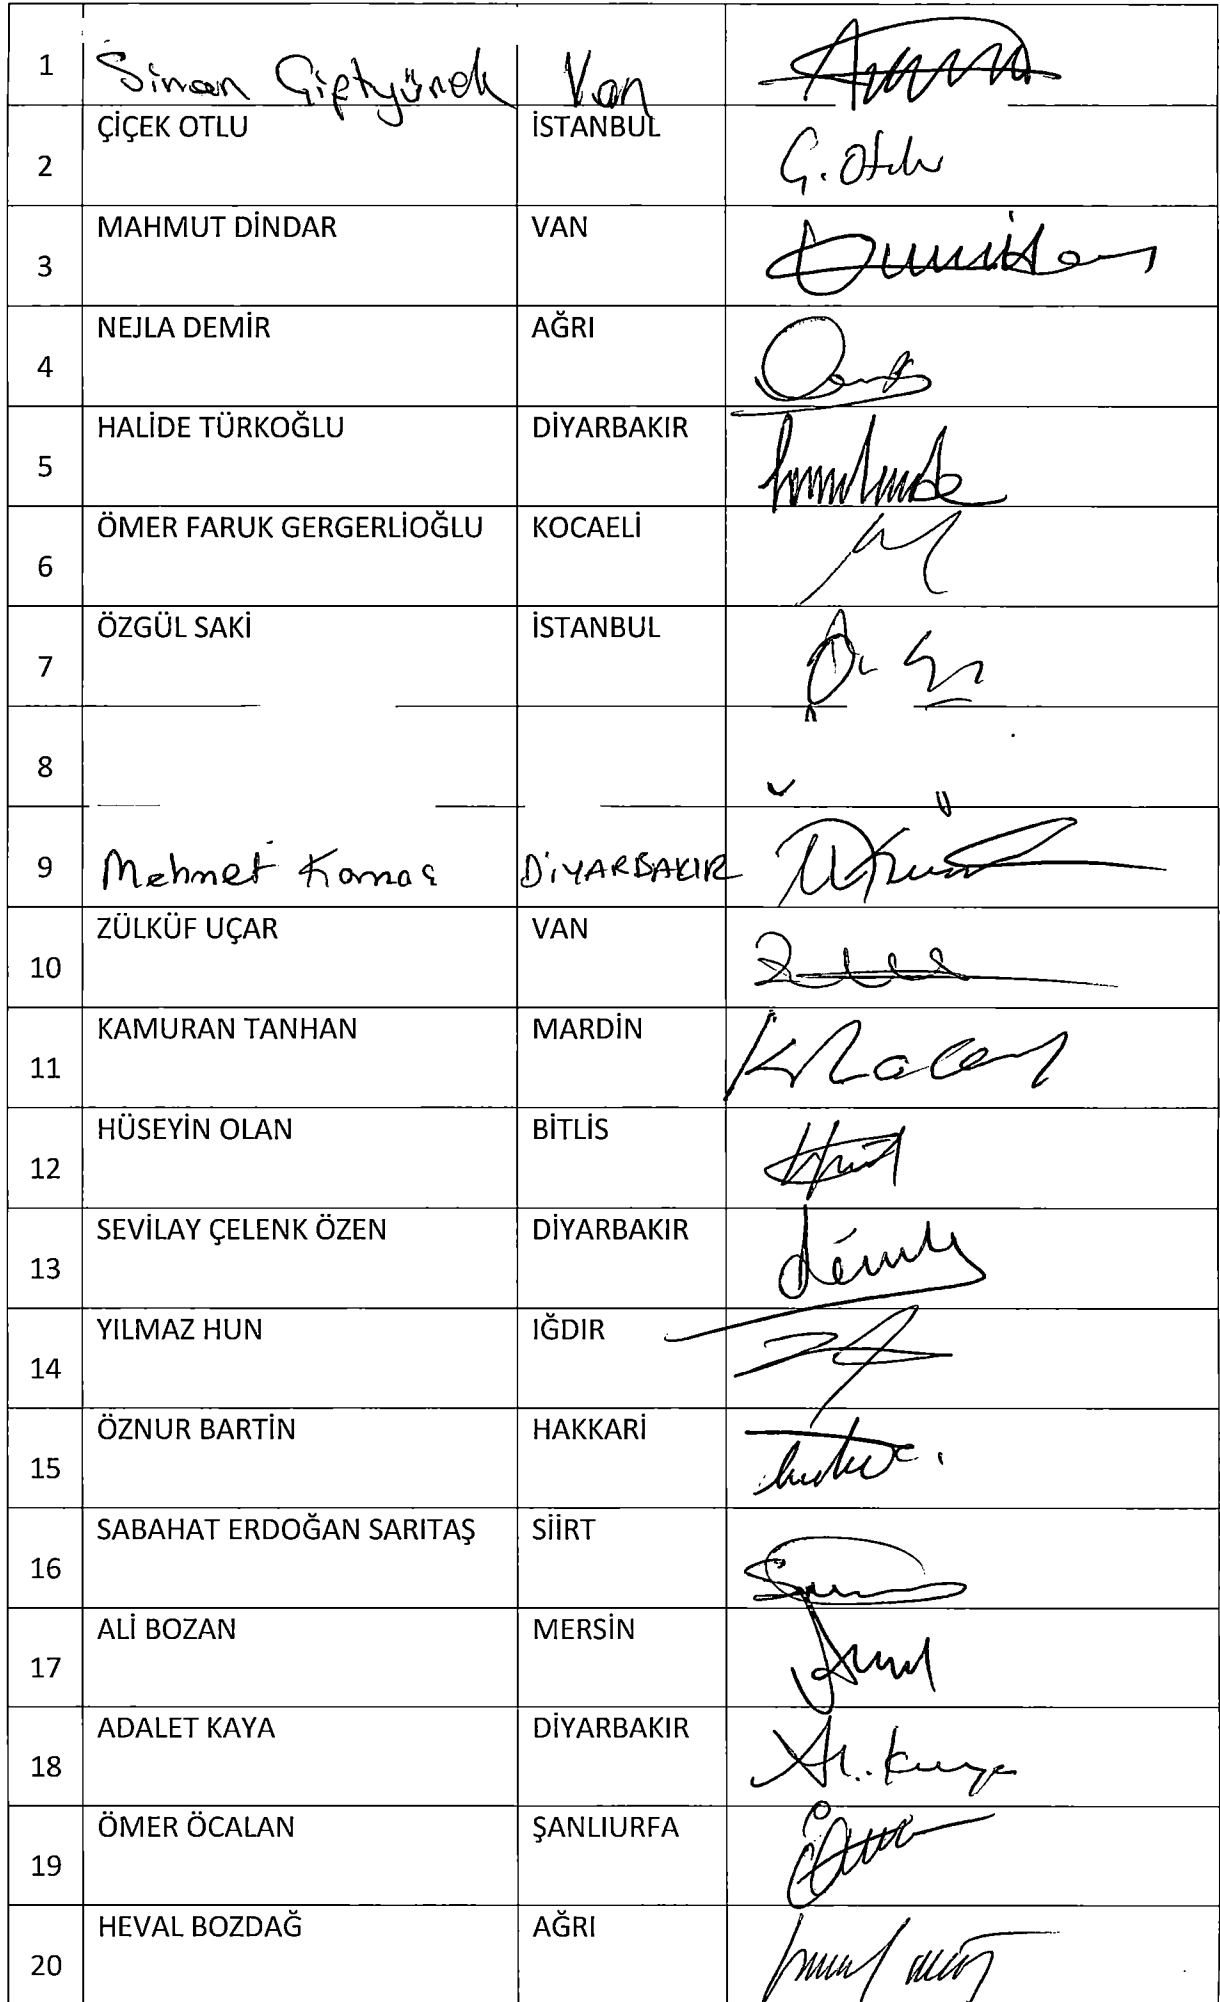 1 Sinan Çiftyürek Van
2 ÇİÇEK OTLU İSTANBUL Ç. Otlu
3 MAHMUT DİNDAR VAN
4 NEJLA DEMİR AĞRI
5 HALİDE TÜRKOĞLU DİYARBAKIR
6 ÖMER FARUK GERGERLİOĞLU KOCAELİ
7 ÖZGÜL SAKİ İSTANBUL
8
9 Mehmet Kamaç DİYARBAKIR
10 ZÜLKÜF UÇAR VAN
11 KAMURAN TANHAN MARDİN
12 HÜSEYİN OLAN BİTLİS
13 SEVİLAY ÇELENK ÖZEN DİYARBAKIR
14 YILMAZ HUN IĞDIR
15 ÖZNUR BARTİN HAKKARİ
16 SABAHAT ERDOĞAN SARITAŞ SİİRT
17 ALİ BOZAN MERSİN
18 ADALET KAYA DİYARBAKIR
19 ÖMER ÖCALAN ŞANLIURFA
20 HEVAL BOZDAĞ AĞRI